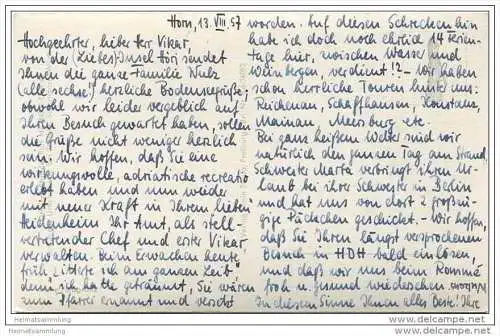 Horn, 13. VIII. 57
Hochgeehrter, lieber Herr Vikar,
von der (Liebes) Insel Höri sendet
Ihnen die ganze Familie Wulz
(alle sechse!) herzliche Bodenseegrüße;
obwohl wir leider vergeblich auf
Ihren Besuch gewartet haben, sollen
die Grüße nicht weniger herzlich
sein. Wir hoffen, daß Sie eine
wirkungsvolle, adriatische recreatio
erlebt haben und nun wieder
mit neuer Kraft in Ihrem lieben
Heidenheim Ihr Amt, als stell-
vertretender Chef und erster Vikar
verwalten. Beim Erwachen heute
früh zitterte ich am ganzen Leib-
denn ich hatte geträumt, Sie wären
zum Pfarrer ernannt und versetzt
worden. Auf diesen Schrecken hin
habe ich doch noch ehrlich 14 Ferien-
tage hier, zwischen Wasser und
Weinbergen, verdient!? - Wir haben
schon herrliche Touren hinter uns:
Reichenau, Schaffhausen, Konstanz,
Mainau, Meersburg etc.
Bei ganz heißem Wetter sind wir
natürlich den ganzen Tag am Strand.
Schwester Marta verbringt ihren Ur-
laub bei ihrer Schwester in Berlin
und hat uns von dort 2 großzü-
gige Päckchen geschickt. - Wir hoffen,
daß Sie Ihren längst versprochenen
Besuch in HDH bald einlösen,
und daß wir uns beim Rommé
froh u. gesund wiedersehen.
In diesem Sinne Ihnen alles Beste! Ihre
Heimatsammlung
www.heimatsammlung.de